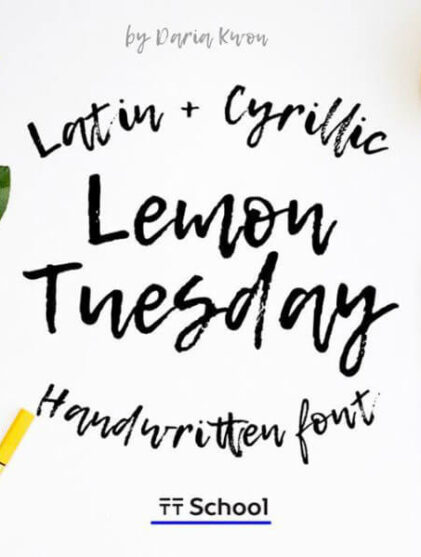 by Daria Kwon
Latin + Cyrillic
Lemon
Tuesday
Handwritten font
TT School